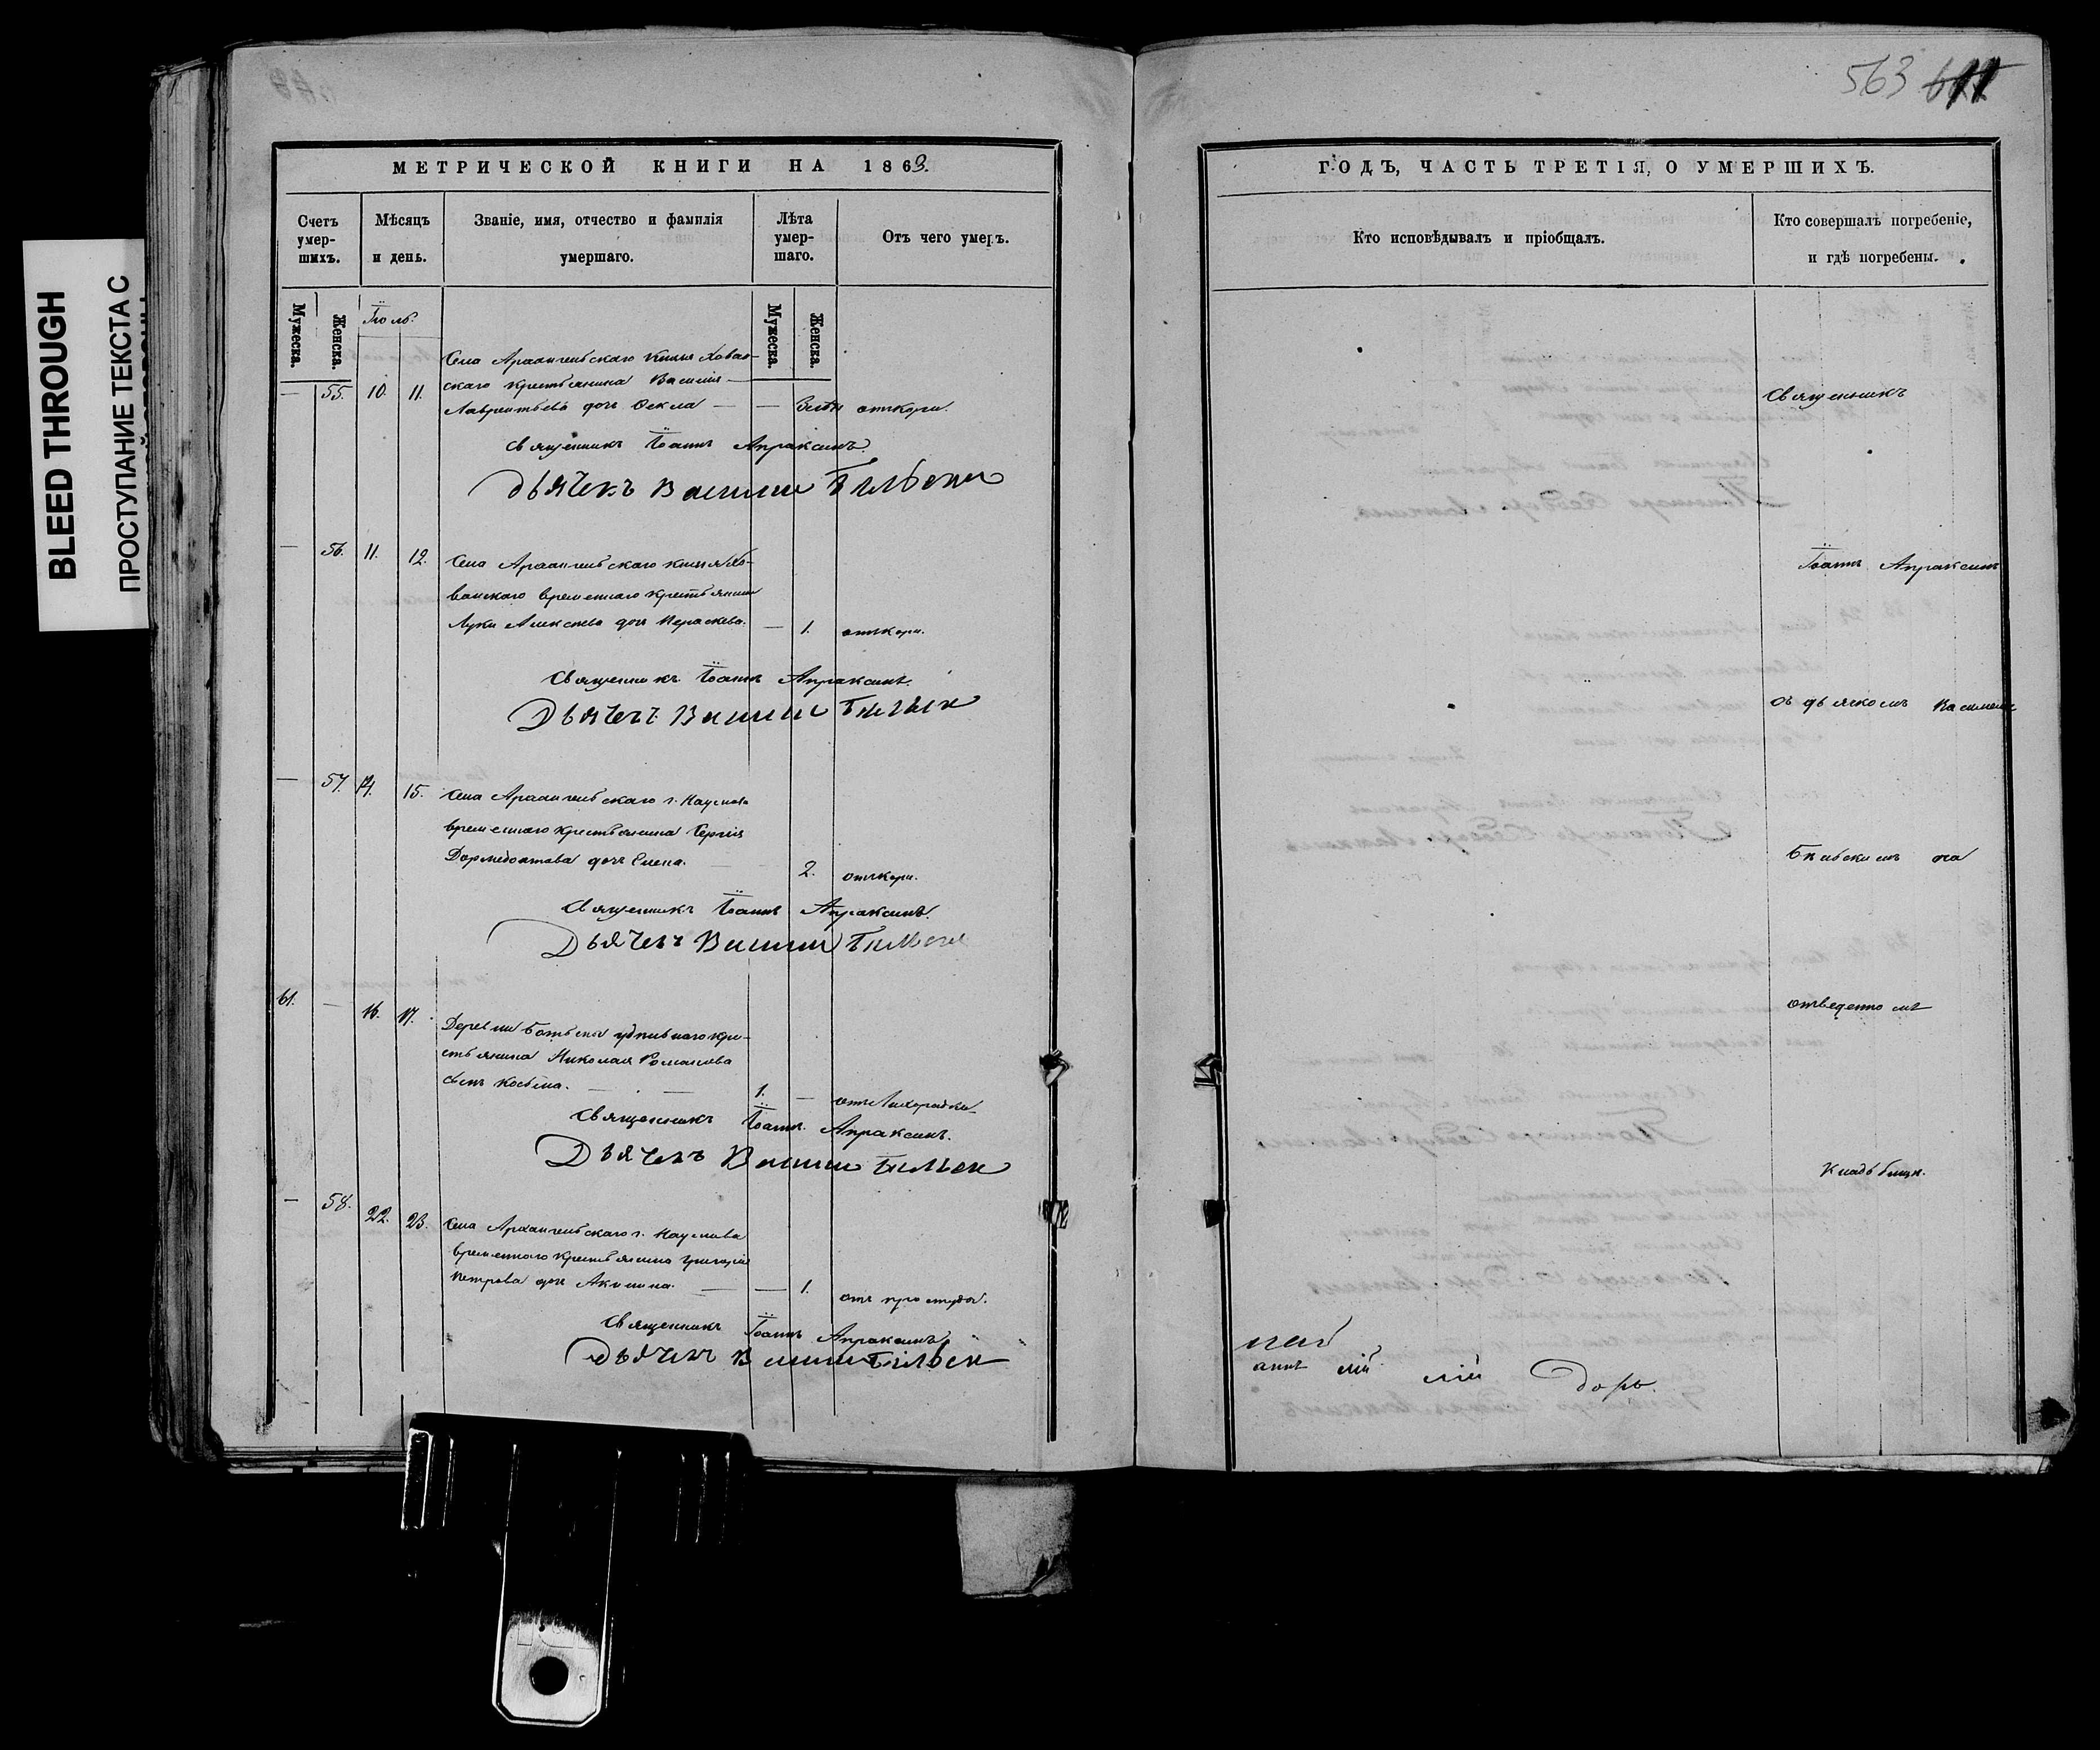 BLEED THROUGH
ПРОСТУПАНИЕ ТЕКСТА С
563
МЕТРИЧЕСКОЙ КНИГИ НА 1863.
Счетъ умер-шихъ.
Мѣсяцъ и день.
Званіе, имя, отчество и фамилія умершаго.
Лѣта умер-шаго.
Отъ чего умеръ.
Мужеска. Женска.
Іюль.
Мужеска. Женска.
Села Архангельскаго Князя Хован-
— 55. 10. 11. скаго крестьянина Василія
Лаврентьева дочь Фекла — — отъ кори.
Священникъ Іоаннъ Апраксинъ.
Дьячекъ Василий
— 56. 11. 12. Села Архангельскаго князя Хо-
ванскаго временнаго крестьянина
Луки Алексѣева дочь Параскева. — 1. отъ кори.
Священникъ Іоаннъ Апраксинъ.
Дьячекъ Василий
— 57. 14. 15. Села Архангельскаго г. Наумова
временнаго крестьянина Сергія
Дормедонтова дочь Елена. — 2. отъ кори.
Священникъ Іоаннъ Апраксинъ.
Дьячекъ Василий
61. — 16. 17. Деревни удѣльнаго кре-
стьянина Николая Романова
сынъ Косьма. — — 1. — отъ лихорадки
Священникъ Іоаннъ Апраксинъ.
Дьячекъ Василий
— 58. 22. 23. Села Архангельскаго г. Наумова
временнаго крестьянина Григорія
Петрова дочь Акилина. — — 1. отъ простуды.
Священникъ Іоаннъ Апраксинъ
Дьячекъ Василий
ГОДЪ, ЧАСТЬ ТРЕТІЯ, О УМЕРШИХЪ.
Кто исповѣдывалъ и пріобщалъ.
Кто совершалъ погребеніе,
и гдѣ погребены.
Священникъ
Іоаннъ Апраксинъ
съ дьячкомъ Василіемъ
на
отведенномъ
кладбищѣ.